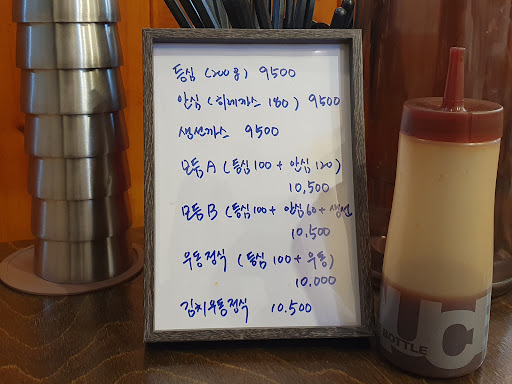 등심 (200g) 9500
안심 (히레까스 180) 9500
생선까스 9500
모듬 A (등심 100 + 안심 120)
10,500
모듬 B (등심 100 + 안심 60 + 생선
10,500
우동정식 (등심 100 + 우동)
10.000
김치우동정식 10.500
BOTTLE